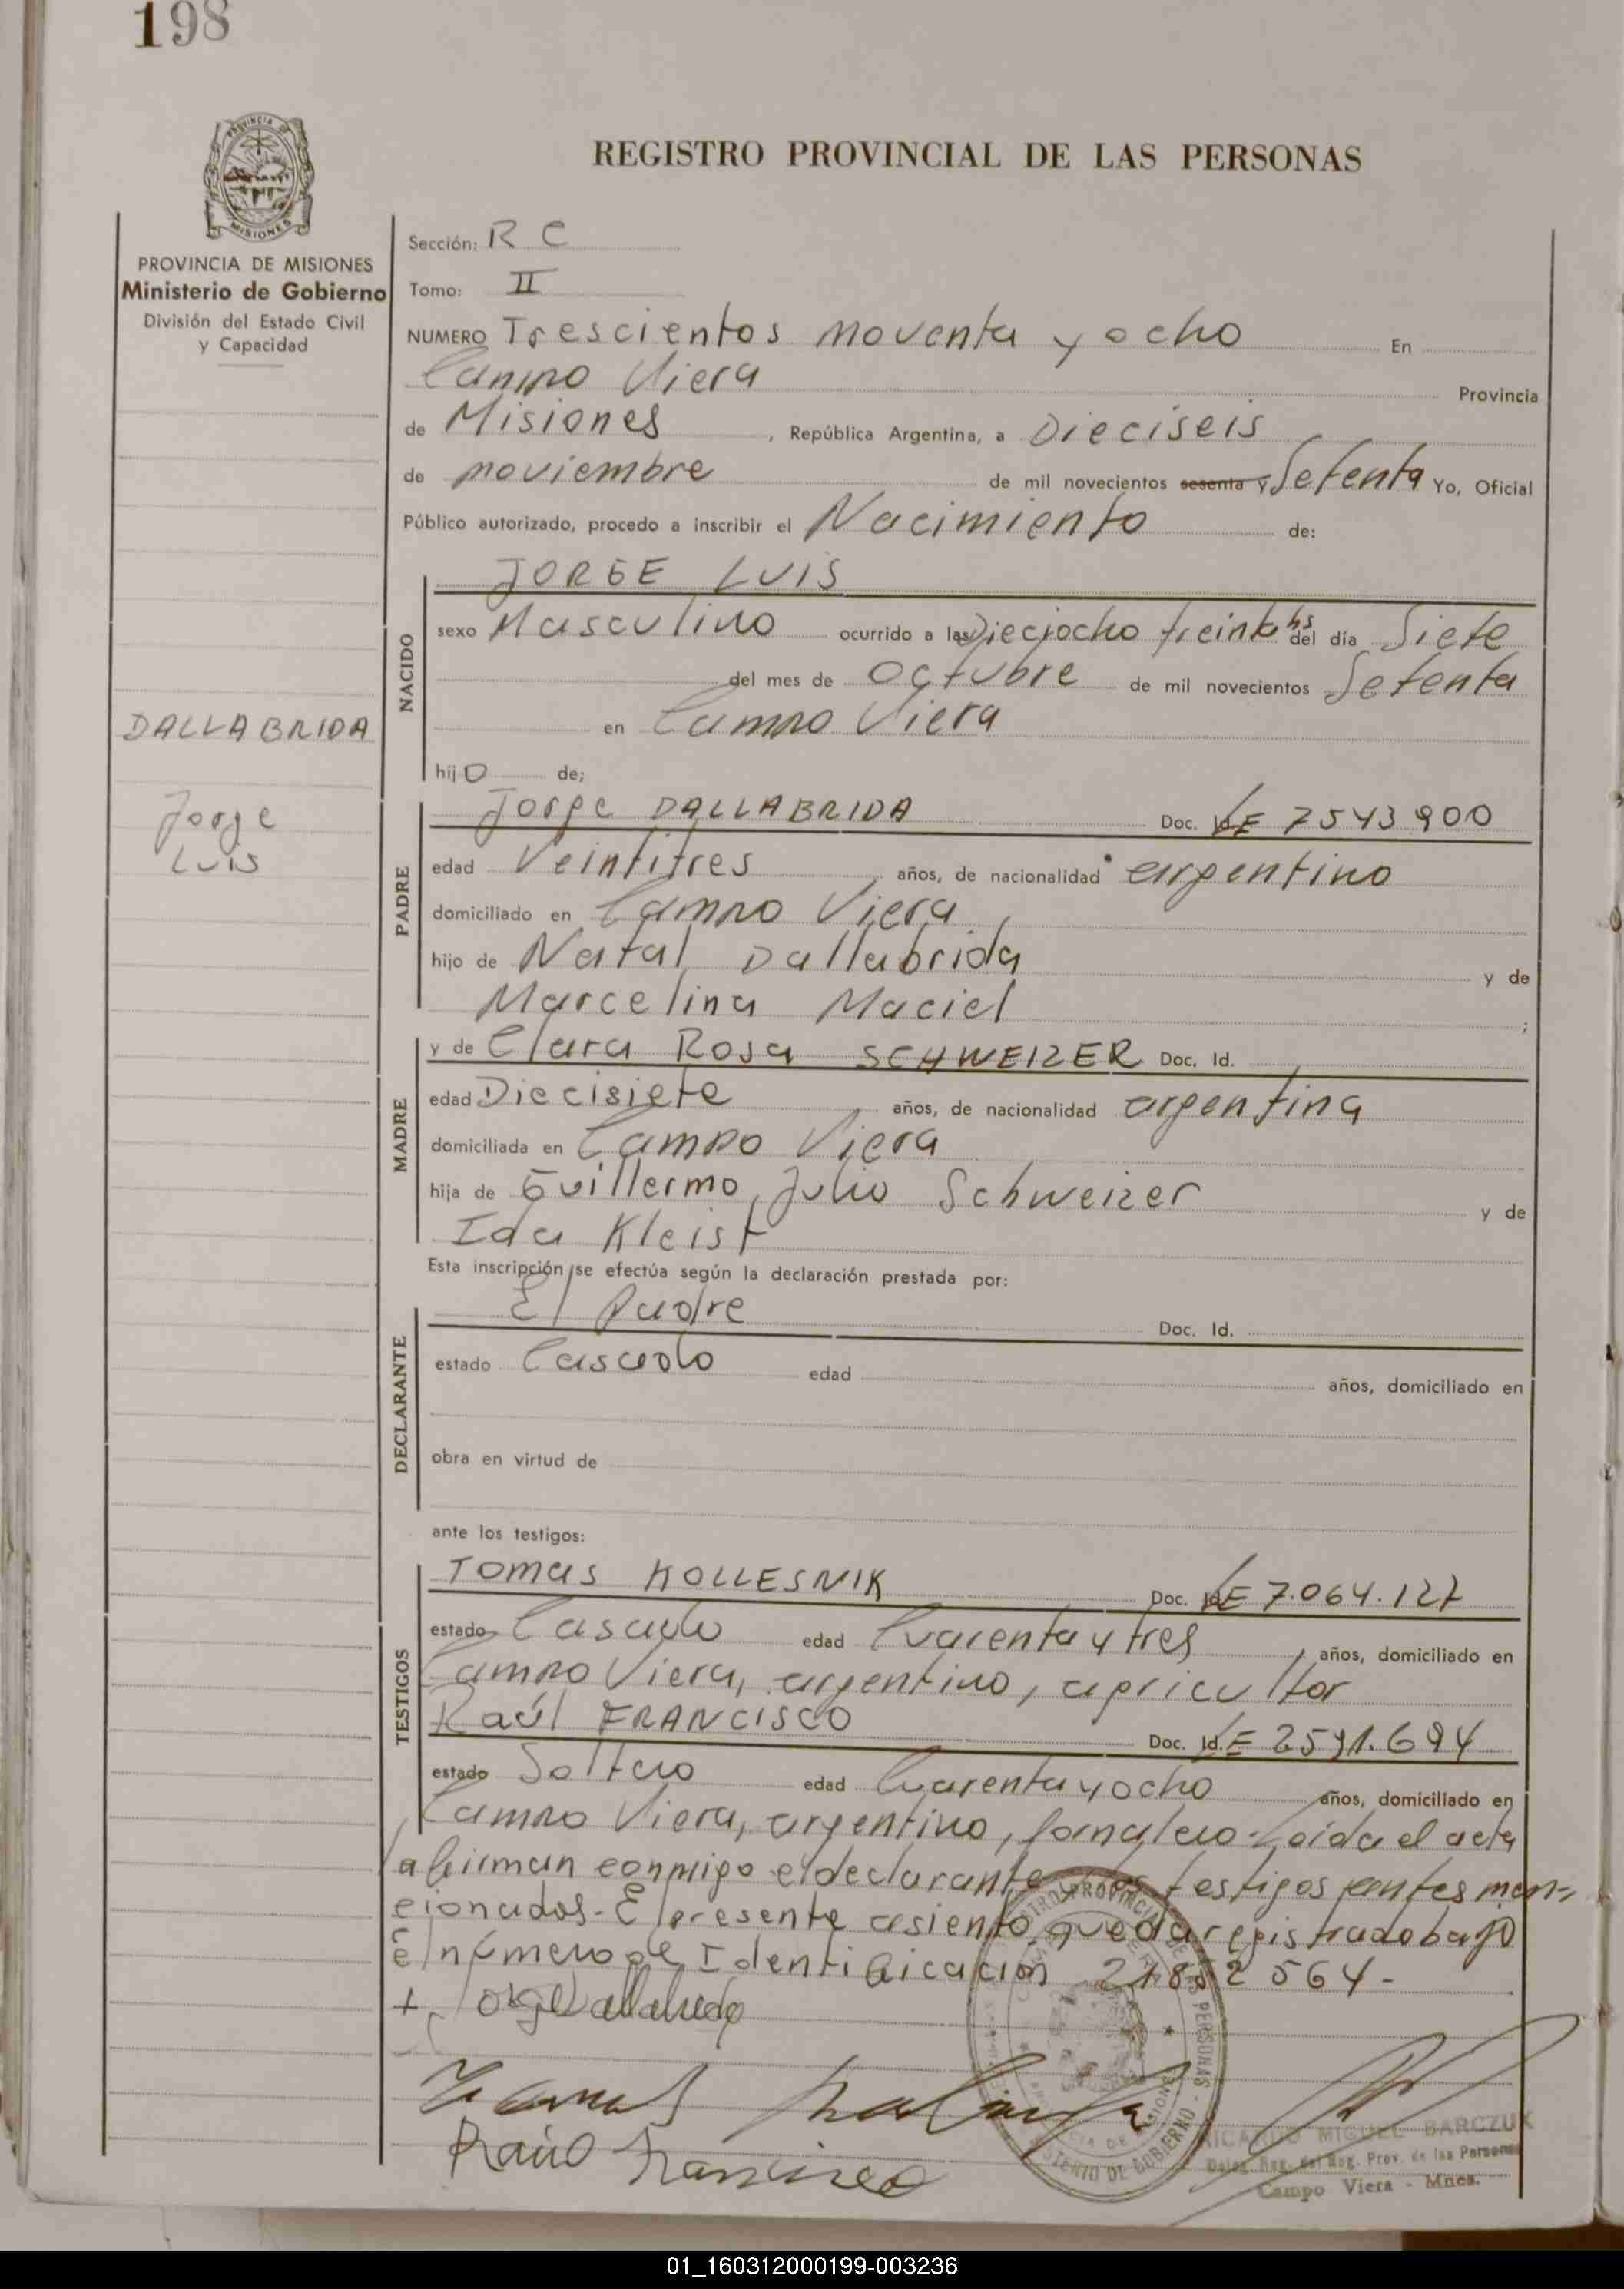 198
PROVINCIA DE
MISIONES
REGISTRO PROVINCIAL DE LAS PERSONAS
PROVINCIA DE MISIONES
Ministerio de Gobierno
División del Estado Civil
y Capacidad
DALLABRIDA
Jorge
Luis
Sección: R C
Tomo: II
NUMERO Trescientos noventa y ocho En
Campo Viera Provincia
de Misiones, República Argentina, a Dieciseis
de noviembre de mil novecientos sesenta y Setenta Yo, Oficial
Público autorizado, procedo a inscribir el Nacimiento de:
NACIDO
JORGE LUIS
sexo Masculino ocurrido a las Dieciocho treinta hs del día Siete
del mes de Octubre de mil novecientos Setenta
en Campo Viera
hijo de;
PADRE
Jorge DALLABRIDA Doc. LE 7543900
edad Veintitres años, de nacionalidad argentino
domiciliado en Campo Viera,
hijo de Natal Dallabrida y de
Marcelina Maciel ;
MADRE
y de Clara Rosa SCHWEIZER Doc. Id.
edad Diecisiete años, de nacionalidad argentina
domiciliada en Campo Viera
hija de Guillermo Julio Schweizer y de
Ida Kleist
Esta inscripción se efectúa según la declaración prestada por:
DECLARANTE
El Padre Doc. Id.
estado Casado edad años, domiciliado en
obra en virtud de
ante los testigos:
TESTIGOS
Tomas KOLLESNIK Doc. LE 7.064.127
estado Casado edad Cuarenta y tres, años, domiciliado en
Campo Viera, argentino, agricultor
Raúl FRANCISCO Doc. Id. LE 2591.694
estado Soltero edad Cuarenta y ocho años, domiciliado en
Campo Viera, argentino, jornalero. Leída el acta
la firman conmigo el declarante y los testigos antes men-
cionados. El presente asiento queda registrado bajo
el número de Identificación 21852564-
+ Jorge Dallabrida
Raúl Francisco
RICARDO MIGUEL BARCZUK
Deleg. Reg. del Reg. Prov. de las Personas
Campo Viera - Mnes.
01_160312000199-003236